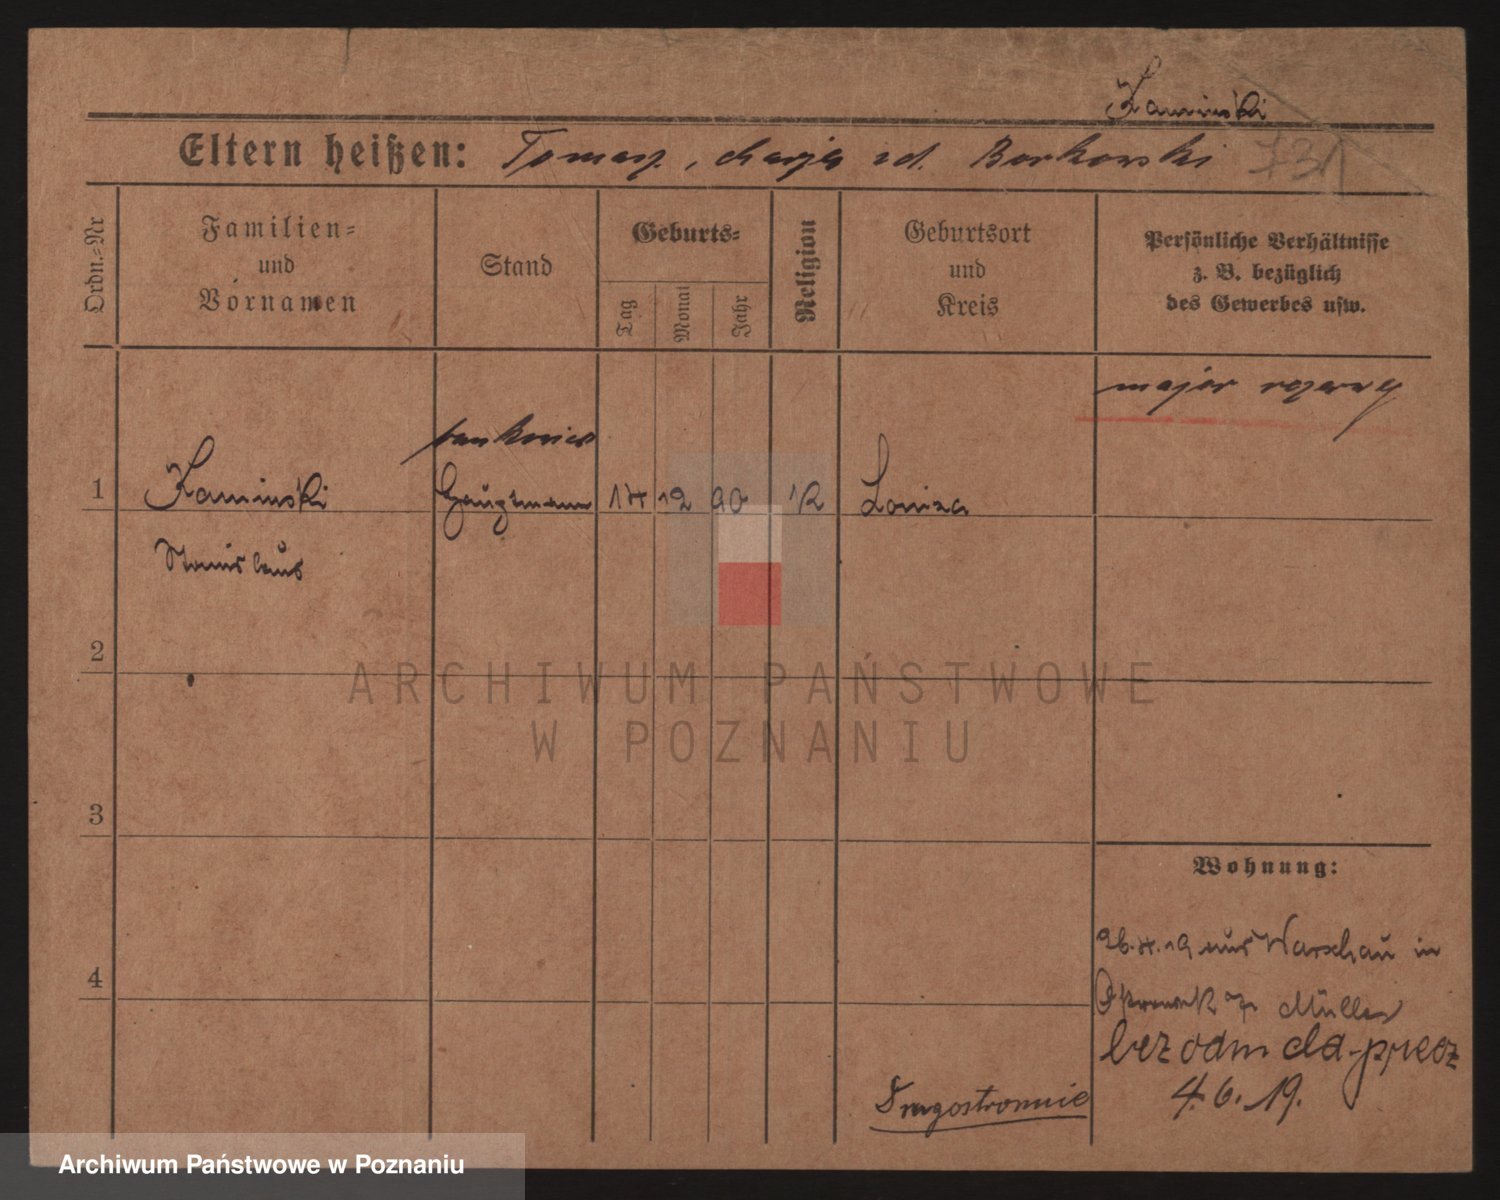 Kaminski
Eltern heißen: Tomasz, Marja zd. Borkowski 731
Ordn.-Nr
Familien-
und
Vornamen
Stand
Geburts-
Tag
Monat
Jahr
Religion
Geburtsort
und
Kreis
Persönliche Verhältnisse
z. B. bezüglich
des Gewerbes usw.
major rezerwy
1
Kaminski
Hauptmann
14
12
90
K
Lomza
Stanislaus
2
3
4
Wohnung:
26.4.19 aus Warschau in
Müller
bez odm
4.6.19.
ARCHIWUM PAŃSTWOWE
W POZNANIU
Archiwum Państwowe w Poznaniu